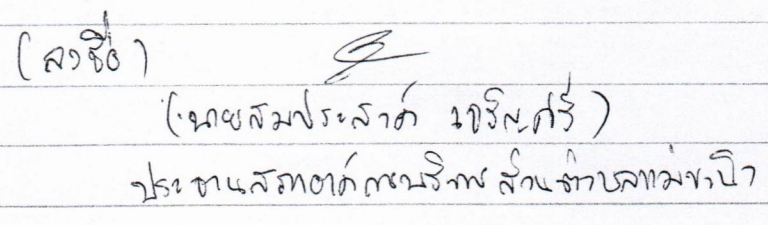 (ลงชื่อ)
(นายสมประสาค์ เจริญศรี)
ประธานสภาองค์การบริหารส่วนตำบลแม่ขะนิง